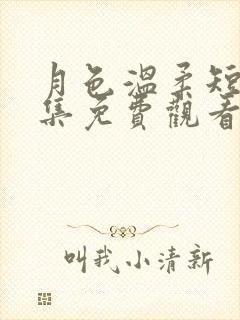 月色溫柔短
集免費觀看
叫我小清新